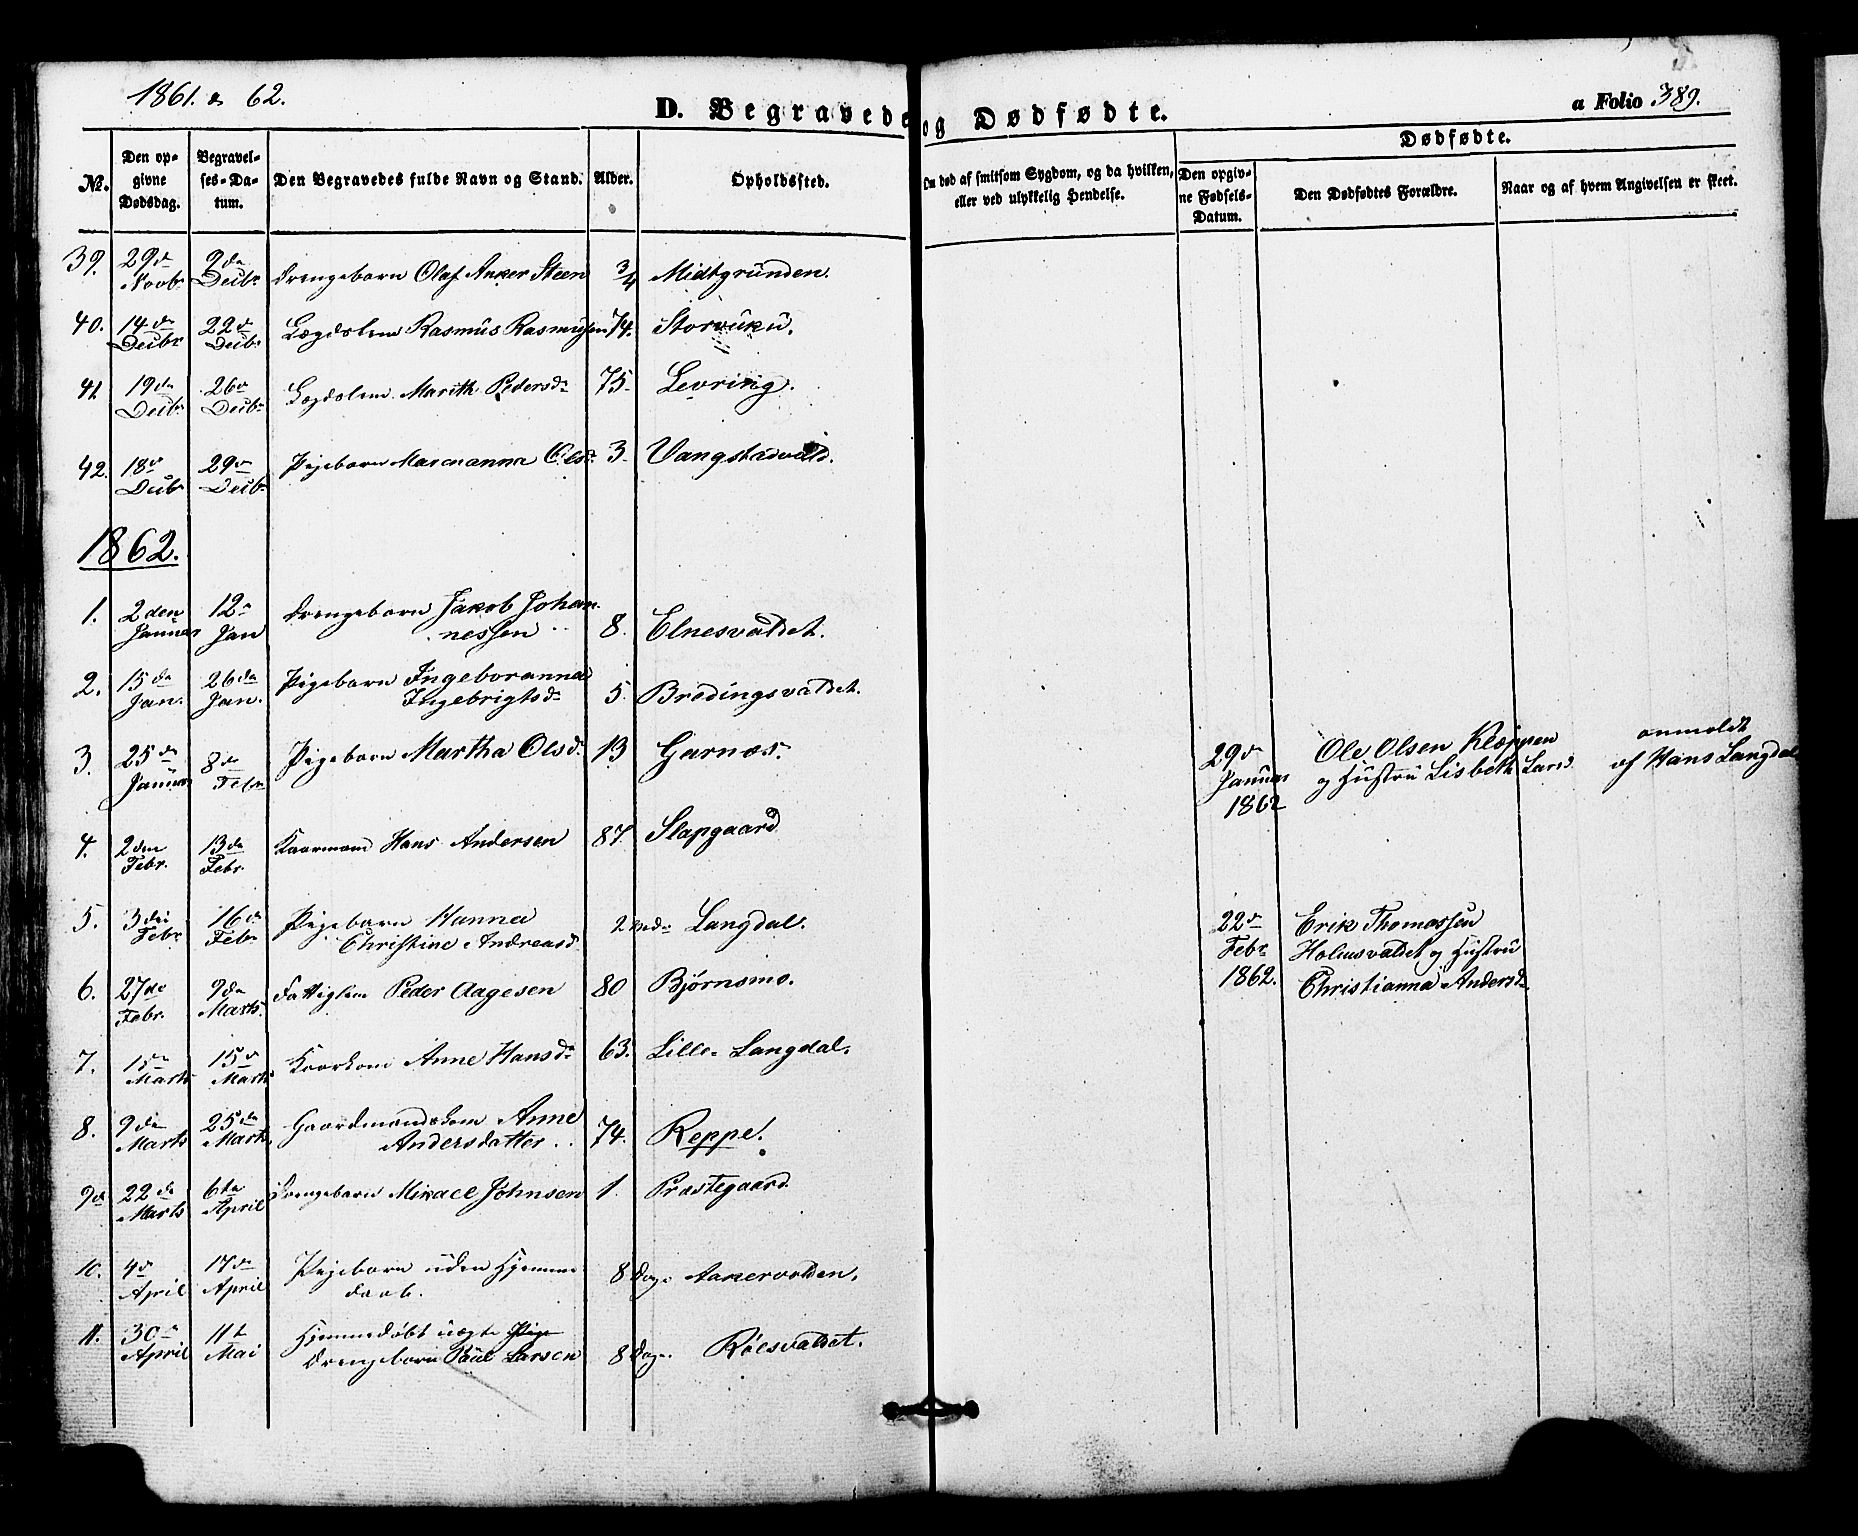 1861. & 62.
D. Begravede og Dødfødte.
a Folio 389.
Dødfødte.
No. Den opgivne Dødsdag. Begravelses-Datum. Den Begravedes fulde Navn og Stand. Alder. Opholdssted. Om død af smitsom Sygdom, og da hvilken, eller ved ulykkelig Hendelse. Den opgivne Fødsels-Datum. Den Dødfødtes Forældre. Naar og af hvem Angivelsen er skeet.
39. 29de Novbr 9da Decbr Drengebarn Olaf Anker Steen 3/4 Midtgrunden.
40. 14de Decbr 22de Decbr Lægdslem Rasmus Rasmussen 74. Storvuku.
41 19da Decbr 26de Decbr Lægdslem Marith Pedersdr 75. Levring.
42. 18de Decbr 29de Decbr Pigebarn Olsdr 3. Vangstadvald.
1862.
1. 2den Januar 12te Jan Drengebarn Jakob Johan-
nessen 8. Elnesvaldet.
2. 15da Jan. 26da Jan. Pigebarn Ingeboranna
Ingebrigtsdr 5. Bredingsvaldet.
3. 25de Januar 8de Febr Pigebarn Martha Olsdr 13 Garnæs.
29de Januar 1862 Ole Olsen Kleppen
og Hustru Lisbeth Larsd
anmeldt
af Hans Langdal
4. 2den Febr. 13da Febr. Kaarmand Hans Andersen 87. Slapgaard
5. 3die Febr 16de Febr Pigebarn Hanna
Christine Andreasd. 2 Mdr Langdal.
22de Febr 1862. Erik Thomassen
Holmsvaldet og Hustru
Christianna Andersdr
6. 27de Febr. 9da Marts. Fattiglem Peder Aagesen 80 Bjørnsmo.
7. 15da Marts 15de Marts Kaarkone Anne Hansdr 63. Lille-Langdal.
8. 9da Marts 25da Marts Gaardmandskone Anne
Andersdatter 74. Reppe.
9de 22de Marts 6te April Drengebarn Mikael Johnsen 1. Præstegaard
10. 4de April 17de April Pigebarn uden Hjemme
daab. 8 Dage Aakervolden.
11. 30te April 11te Mai Hjemmedøbt uægte Pige
Drengebarn Paul Larsen 8 Dage. Röesvaldet.